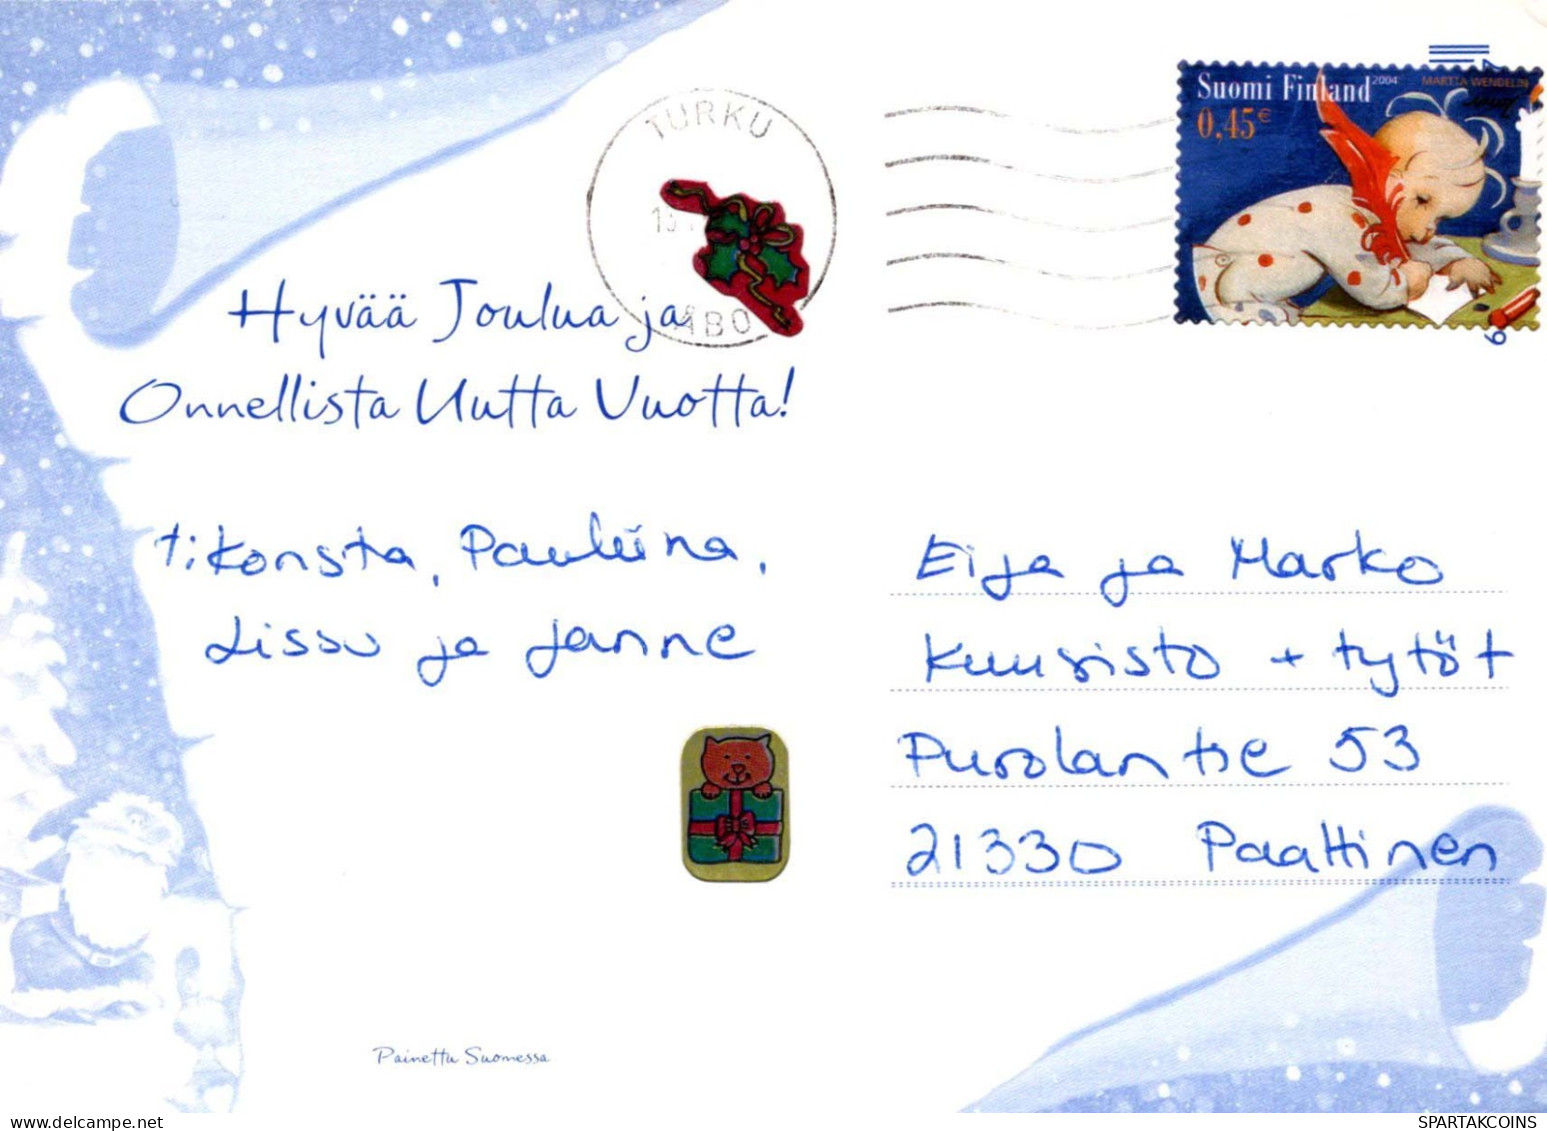 TURKU
13
ÅBO
Suomi Finland 2004 MARTTA WENDELIN
0,45€
Hyvää Joulua ja
Onnellista Uutta Vuotta!
t: Konsta, Pauliina,
Lissu ja Janne
Eija ja Marko
Kuusisto + tytöt
Purolantie 53
21330 Paattinen
Painettu Suomessa
SPARTAKCOINS